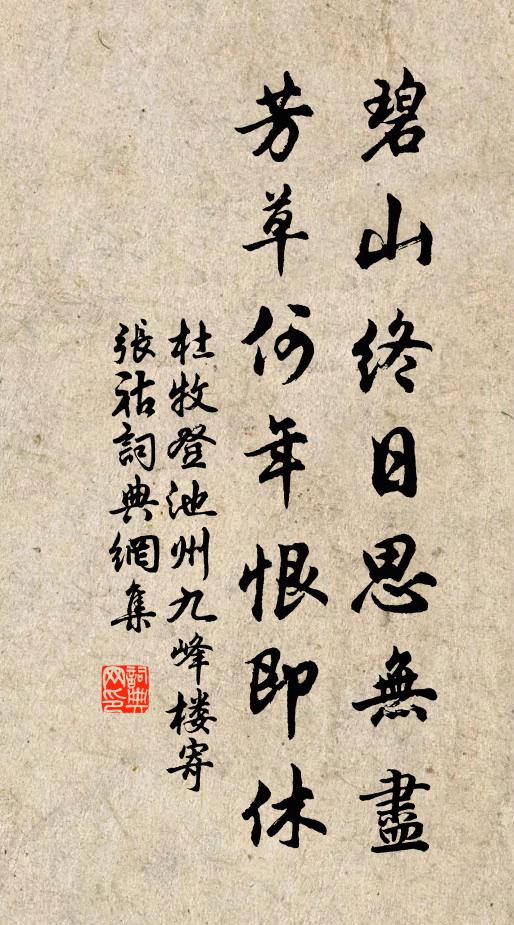 碧山終日思無盡
芳草何年恨即休
杜牧登池州九峰楼寄
張祜詞典網集
詞典網印